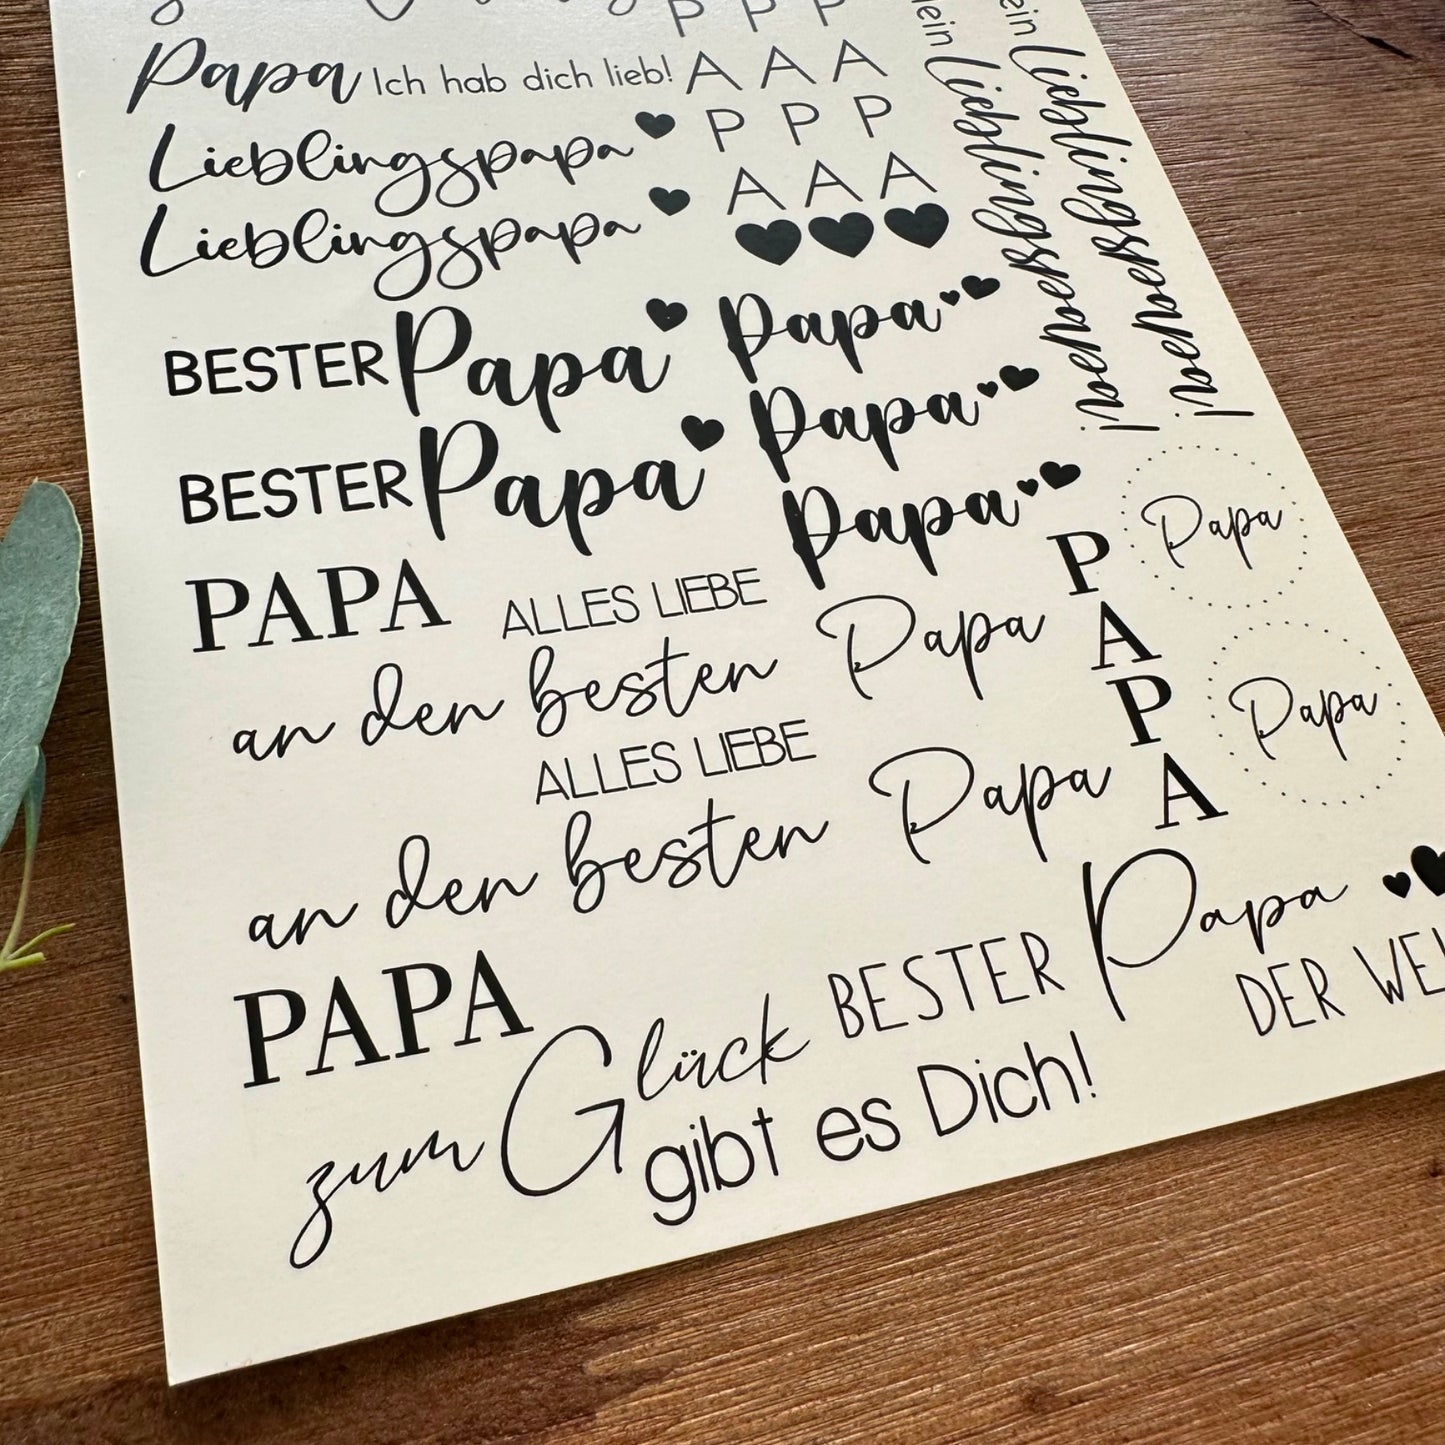 Papa Ich hab dich lieb!
Lieblingspapa
Lieblingspapa
P P P
A A A
P P P
A A A
Lieblingspapa!
Lieblingspapa!
BESTER Papa
BESTER Papa
Papa
Papa
Papa
PAPA
ALLES LIEBE
an den besten Papa
ALLES LIEBE
an den besten Papa
P
A
P
A
Papa
Papa
PAPA
zum Glück
gibt es Dich!
BESTER Papa
DER